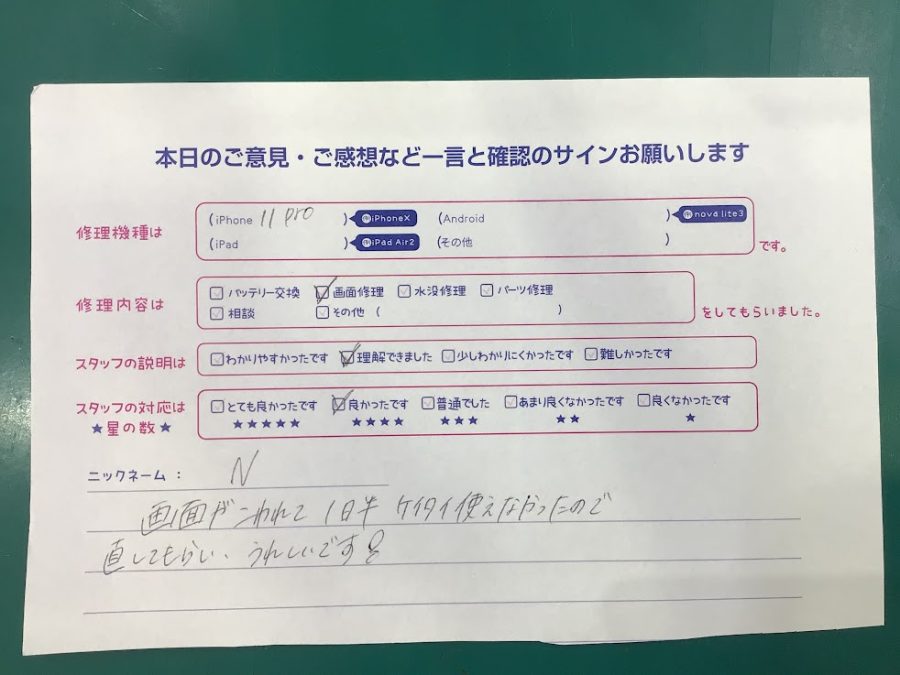 本日のご意見・ご感想など一言と確認のサインお願いします
修理機種は (iPhone 11 pro ) 例iPhoneX (Android ) 例nova lite3
(iPad ) 例iPad Air2 (その他 ) です。
修理内容は バッテリー交換 画面修理 水没修理 パーツ修理
相談 その他 ( ) をしてもらいました。
スタッフの説明は わかりやすかったです 理解できました 少しわかりにくかったです 難しかったです
スタッフの対応は とても良かったです 良かったです 普通でした あまり良くなかったです 良くなかったです
★星の数★ ★★★★★ ★★★★ ★★★ ★★ ★
ニックネーム： N
画面がこわれて 1日半 ケイタイ使えなかったので
直してもらい、うれしいです!